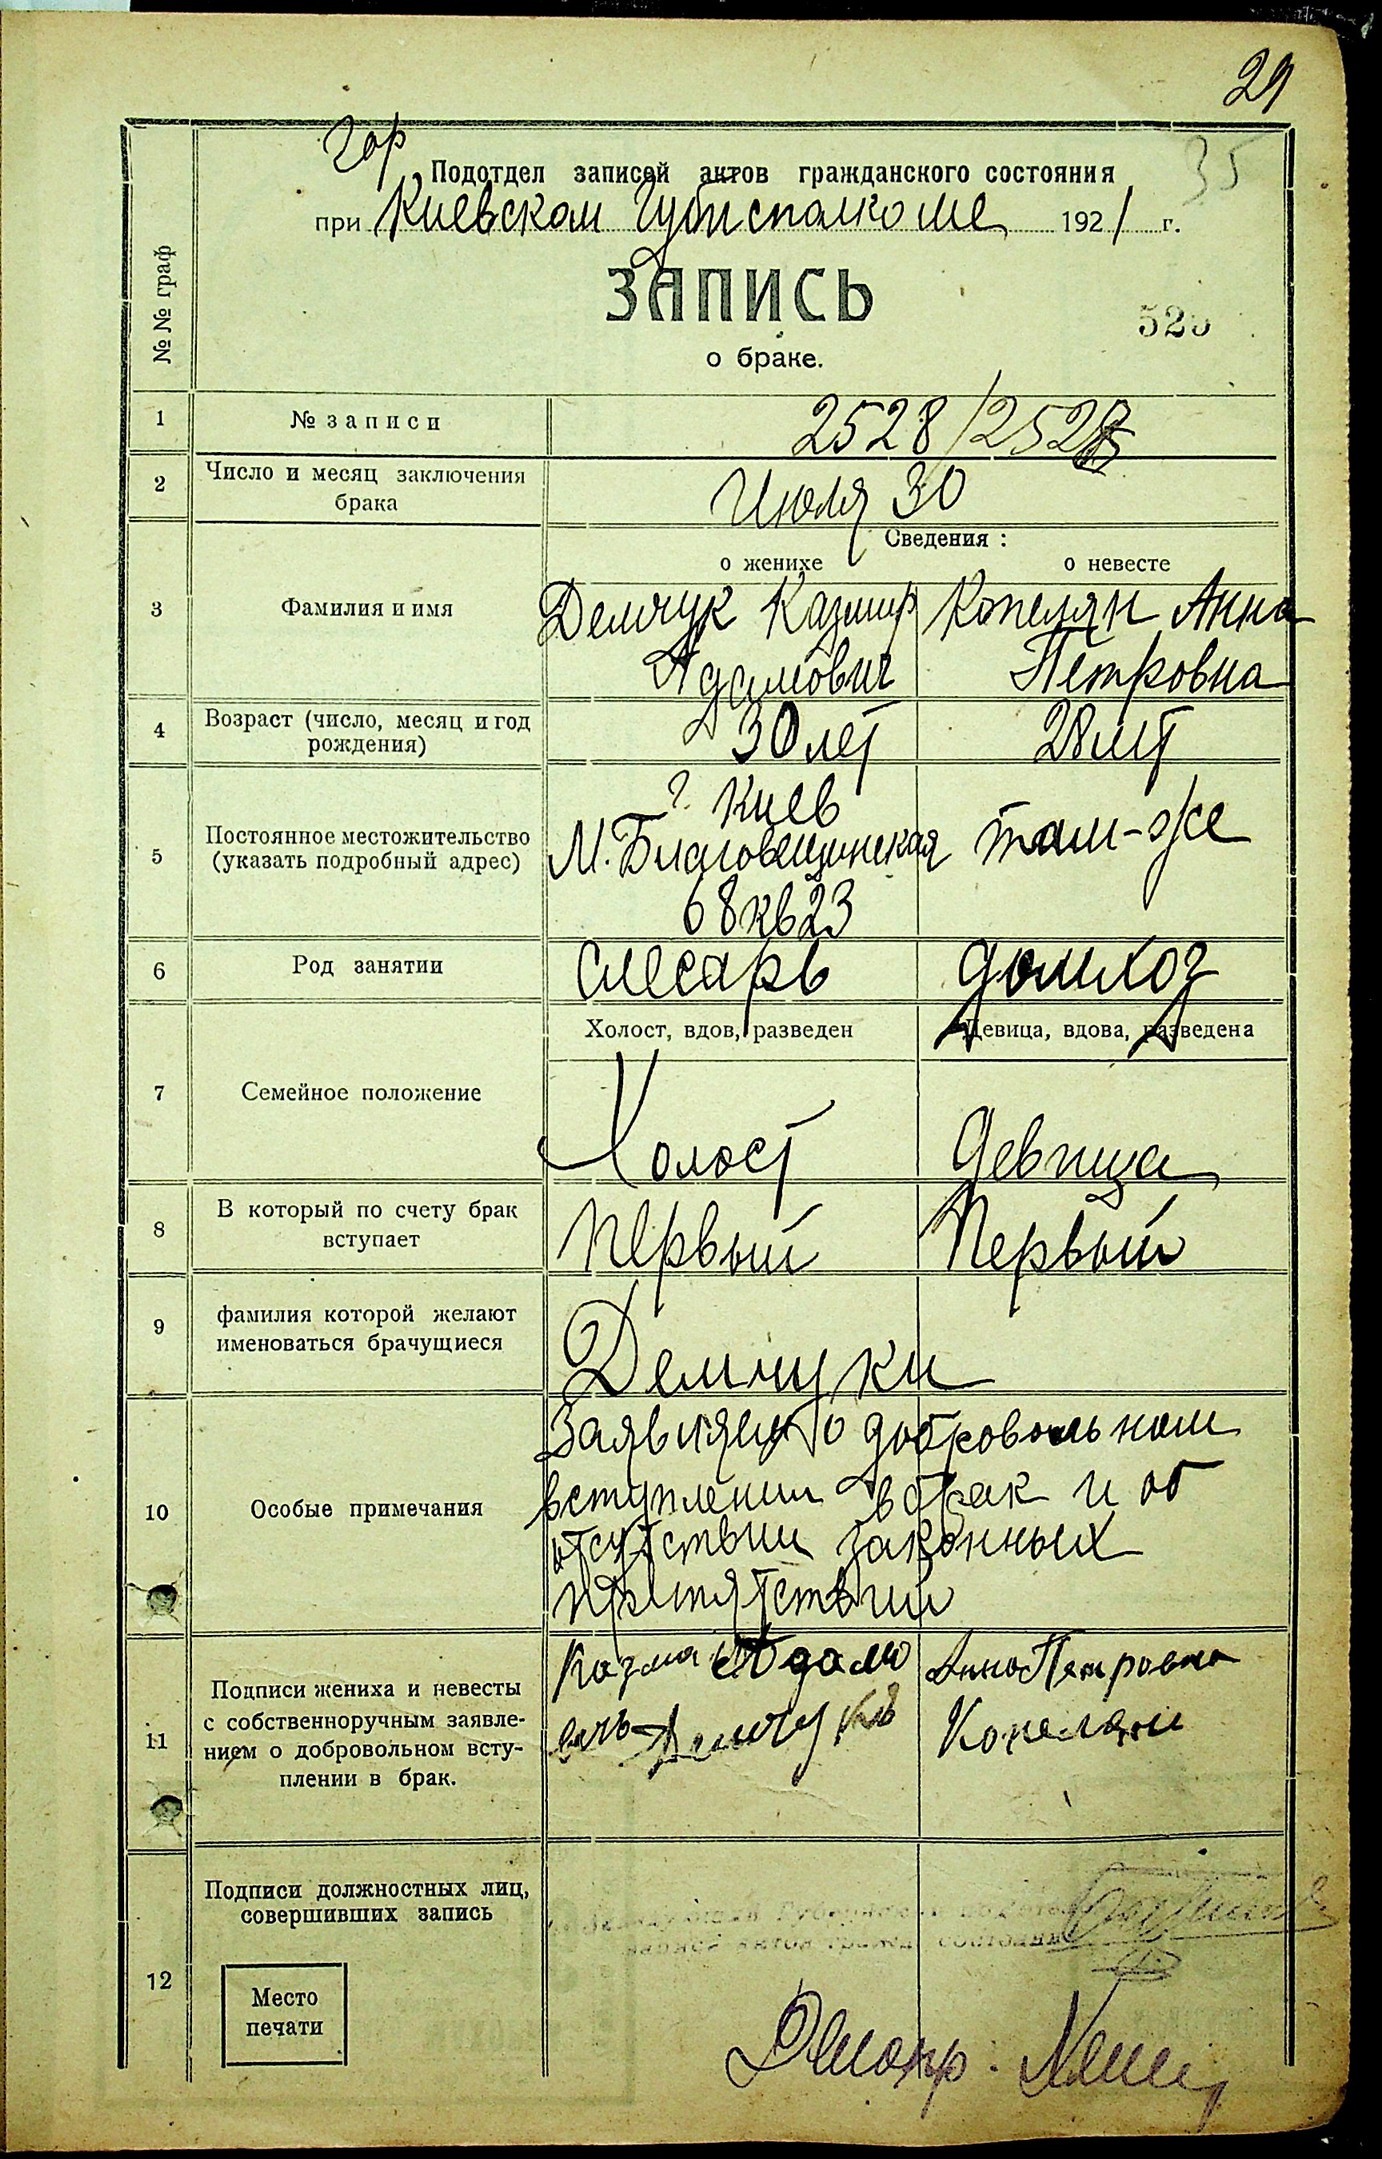 29
35
гор
Подотдел записей актов гражданского состояния
при Киевском Губисполкоме 1921 г.
№ № граф
ЗАПИСЬ
о браке.
1 № записи 2528/2528
2 Число и месяц заключения
брака
Июля 30
Сведения:
о женихе о невесте
3 Фамилия и имя
Демчук Казимир Копелян Анна
Адамович Петровна
4 Возраст (число, месяц и год
рождения)
30 лет 28 лет
5 Постоянное местожительство
(указать подробный адрес)
г. Киев
М. Благовещинская там-же
68 кв 23
6 Род занятии слесарь домхоз
Холост, вдов, разведен Девица, вдова, разведена
7 Семейное положение
Холост Девица
8 В который по счету брак
вступает
Первый Первый
9 фамилия которой желают
именоваться брачущиеся
Демчуки
10 Особые примечания
Заявляем о добровольном
вступлении в брак и об
отсутствии законных
препятствий
11 Подписи жениха и невесты
с собственноручным заявле-
нием о добровольном всту-
плении в брак.
Адамо Анна Петровна
вичъ Демчукъ Копелян
12 Подписи должностных лиц,
совершивших запись
Место
печати